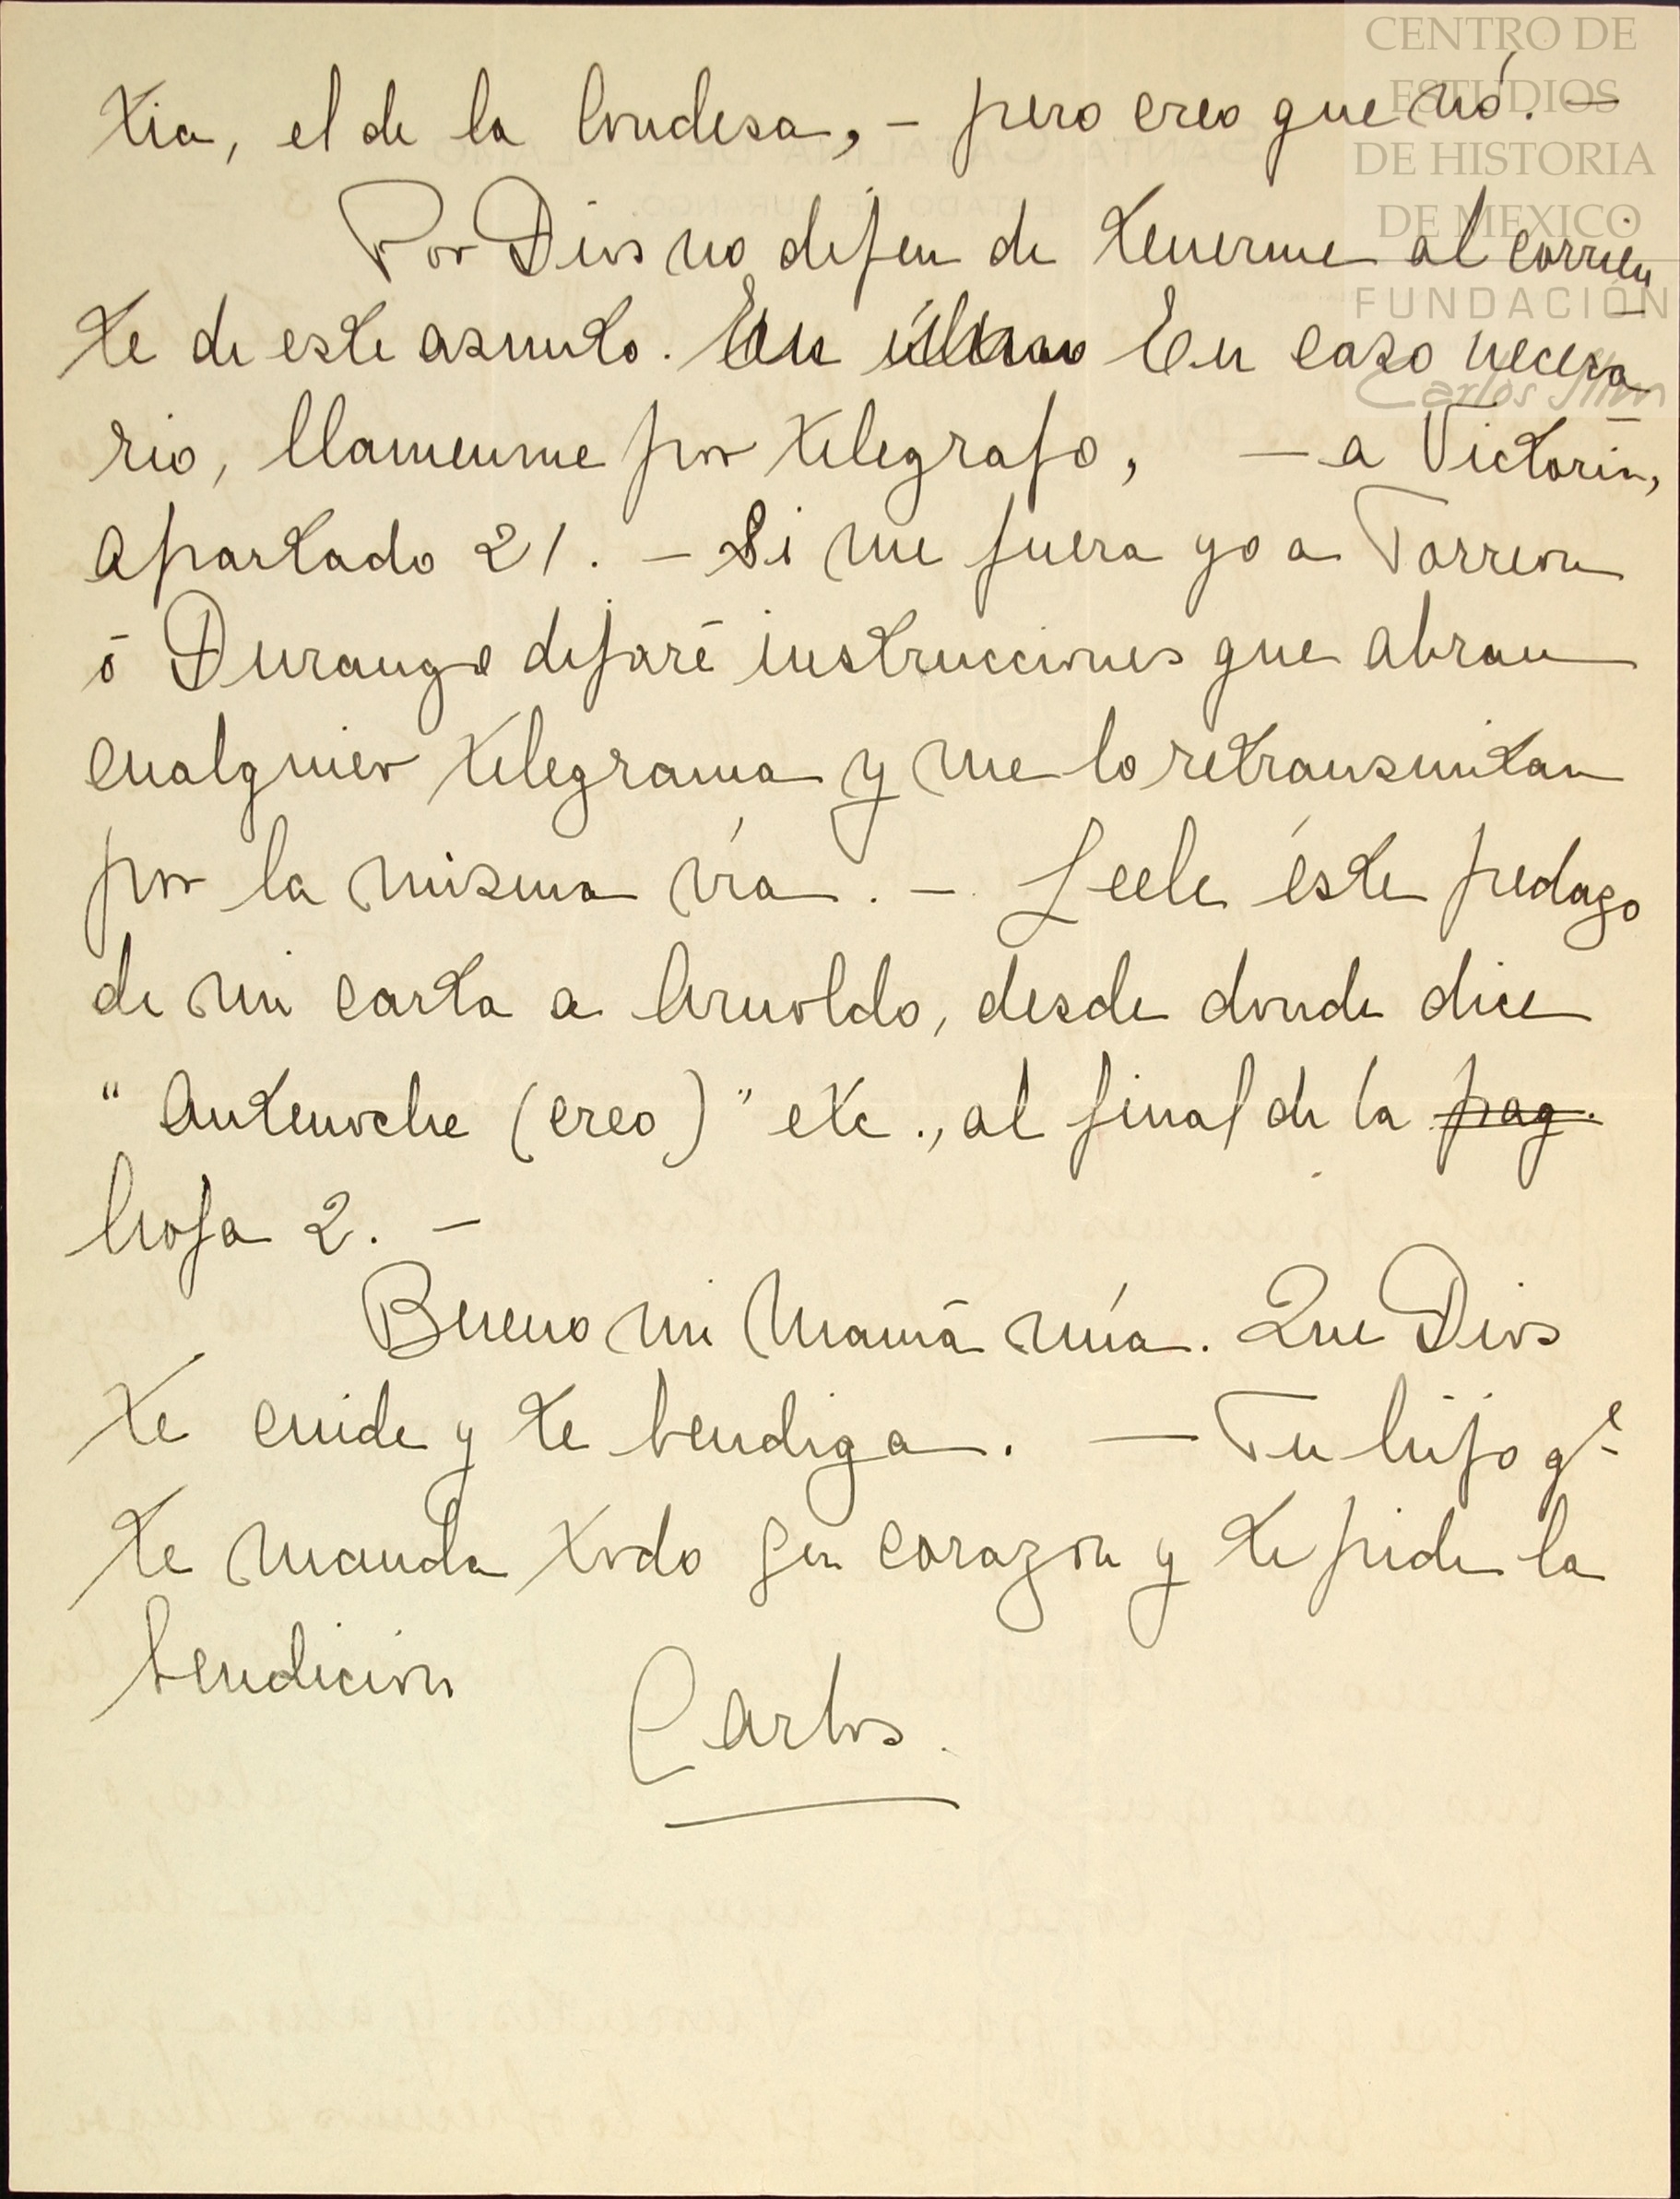 CENTRO DE
ESTUDIOS
DE HISTORIA
DE MEXICO
FUNDACIÓN
Carlos Slim
tia, el de la Condesa, - pero creo que nó. -
Por Dios no dejen de tenerme al corrien
te de este asunto. En último En caso necesa
rio, llamenme por telegrafo, - a Victoria,
Apartado 21. - Si me fuera yo a Torreon
ó Durango dejaré instrucciones que abran
cualquier telegrama y me lo retransmitan
por la misma vía. - Leele éste pedazo
de mi carta a Arnoldo, desde donde dice
"Antenoche (creo)" etc., al final de la pag.
hoja 2. -
Bueno mi Mamá mía. Que Dios
te cuide y te bendiga. - Tu hijo qe
te manda todo su corazon y te pide la
bendicion
Carlos.